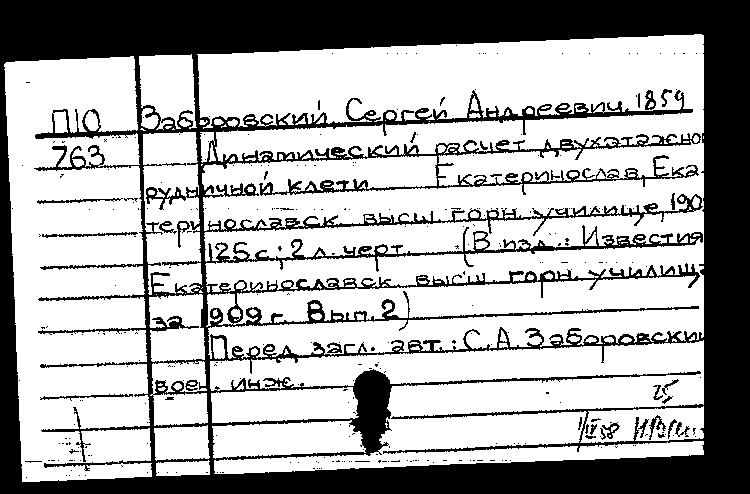 П10 Заборовский, Сергей Андреевич, 1859
763 Динамический расчет двухэтажно
рудничной клети. Екатеринослав, Ека-
теринославск. высш. горн. училище, 190
125 с.; 2 л. черт. (В изд.: Известия
Екатеринославск. высш. горн. училищ
за 1909 г. Вып. 2)
Перед загл. авт.: С.А. Заборовски
воен. инж.
25